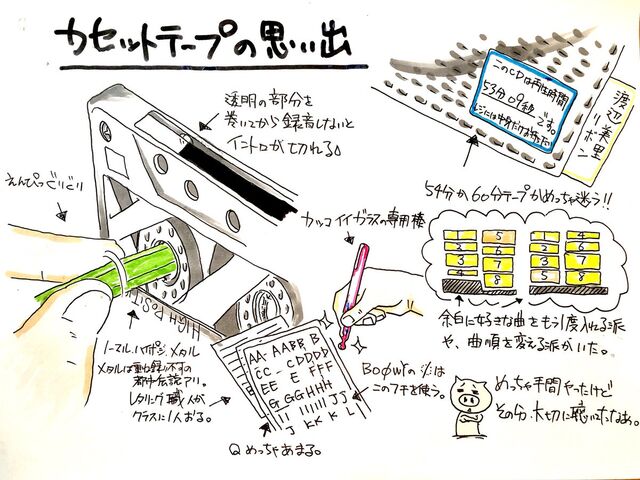 カセットテープの思い出
透明の部分を
巻いてから録音しないと
イントロが切れる。
えんぴつぐりぐり
カッコイイガラスの専用棒
このCDは再生時間
53分09秒です。
レジには中身だけお持ち下さい
渡辺美里
リボン
54分か60分テープかめっちゃ迷う!!
1 5
2 6
3 7
4 8
1 4
2 6
3 7
5 8
余白に好きな曲をもう1度入れる派
や、曲順を変える派がいた。
HIGH POSITI
ノーマル、ハイポジ、メタル
メタルは
都市伝説アリ。
レタリング職人が
クラスに1人おる。
AA-AABB B
CC-CDDDD
EE E FFF
G GGHHH
I IIIIII JJ
J KK K L
Qめっちゃあまる。
BOØWYの
はこのフチを使う。
めっちゃ手間やったけど
その分、大切に聴いてたなぁ。